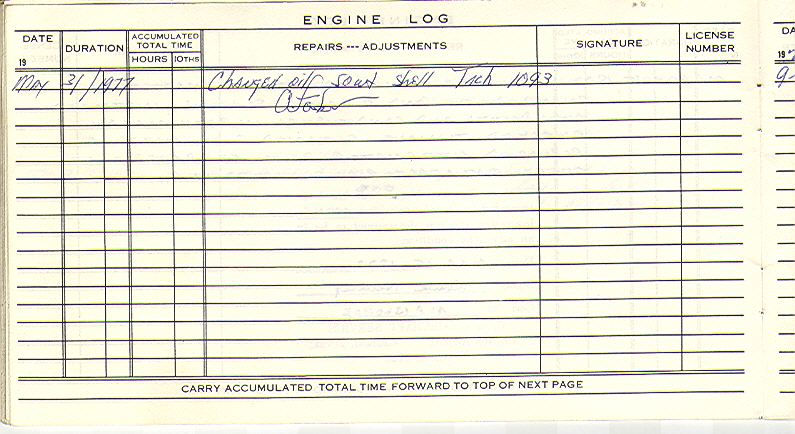 ENGINE LOG
DATE
19
DURATION
ACCUMULATED TOTAL TIME
HOURS 10THS
REPAIRS --- ADJUSTMENTS
SIGNATURE
LICENSE NUMBER
DA
19
May 31/1977 Changed oil 50wt Shell Tach 1093
CARRY ACCUMULATED TOTAL TIME FORWARD TO TOP OF NEXT PAGE